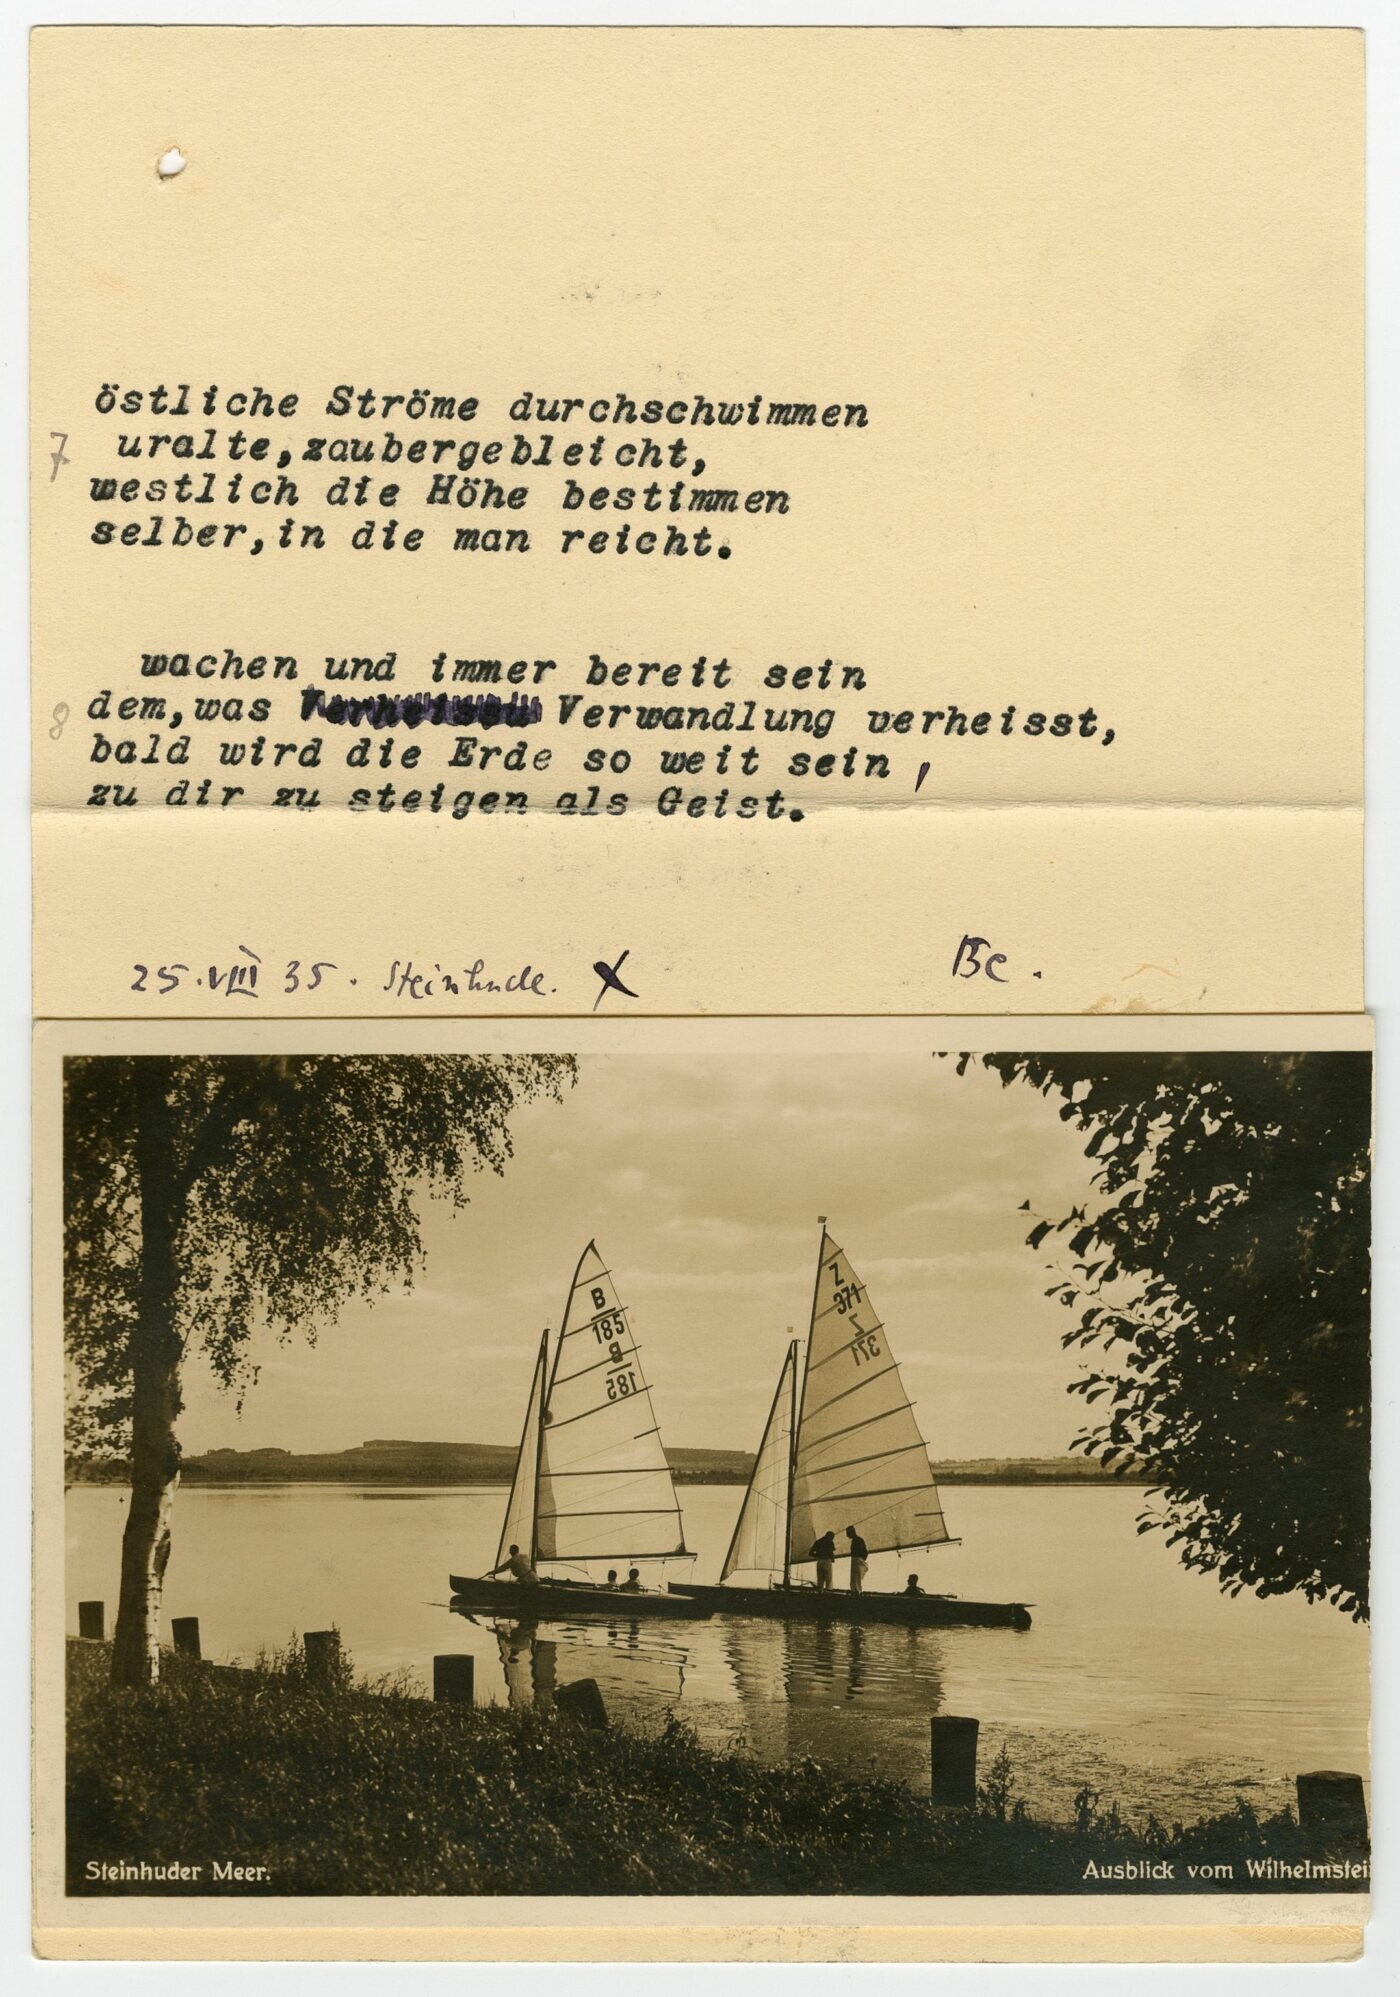 östliche Ströme durchschwimmen
7 uralte,zaubergebleicht,
westlich die Höhe bestimmen
selber,in die man reicht.
wachen und immer bereit sein
8 dem,was Verwandlung verheisst,
bald wird die Erde so weit sein ,
zu dir zu steigen als Geist.
25.VIII 35. Steinhude. X Be.
B
185
B
185
Z
371
Z
371
Steinhuder Meer. Ausblick vom Wilhelmstei